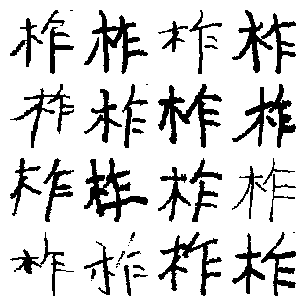 柞柞柞柞
柞柞柞柞
柞柞柞柞
柞柞柞柞